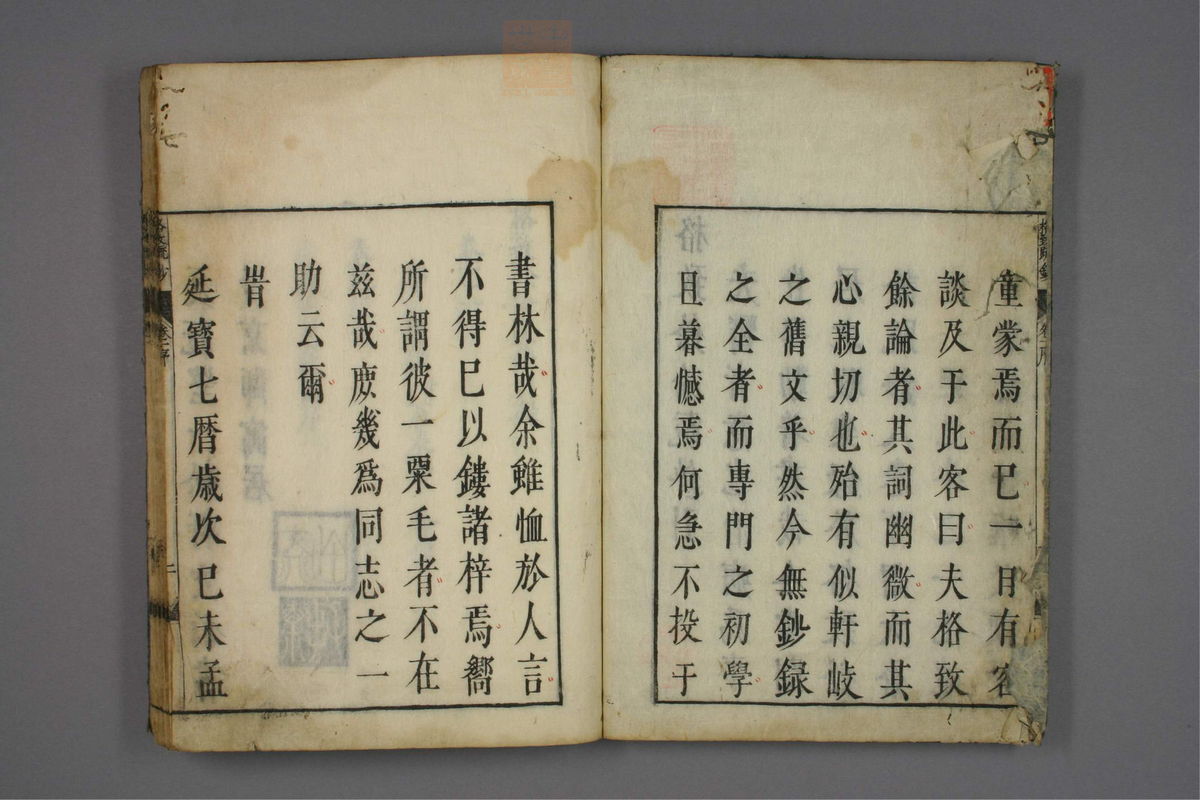 童蒙焉而已一日有客
談及于此客曰夫格致
餘論者其詞幽微而其
心親切也殆有似軒岐
之舊文乎然今無鈔録
之全者而專門之初學
且暮憾焉何急不投于
書林哉余雖恤於人言
不得已以鏤諸梓焉嚮
所謂彼一粟毛者不在
茲哉庶幾爲同志之一
助云爾
旹
延寶七暦歳次己未孟